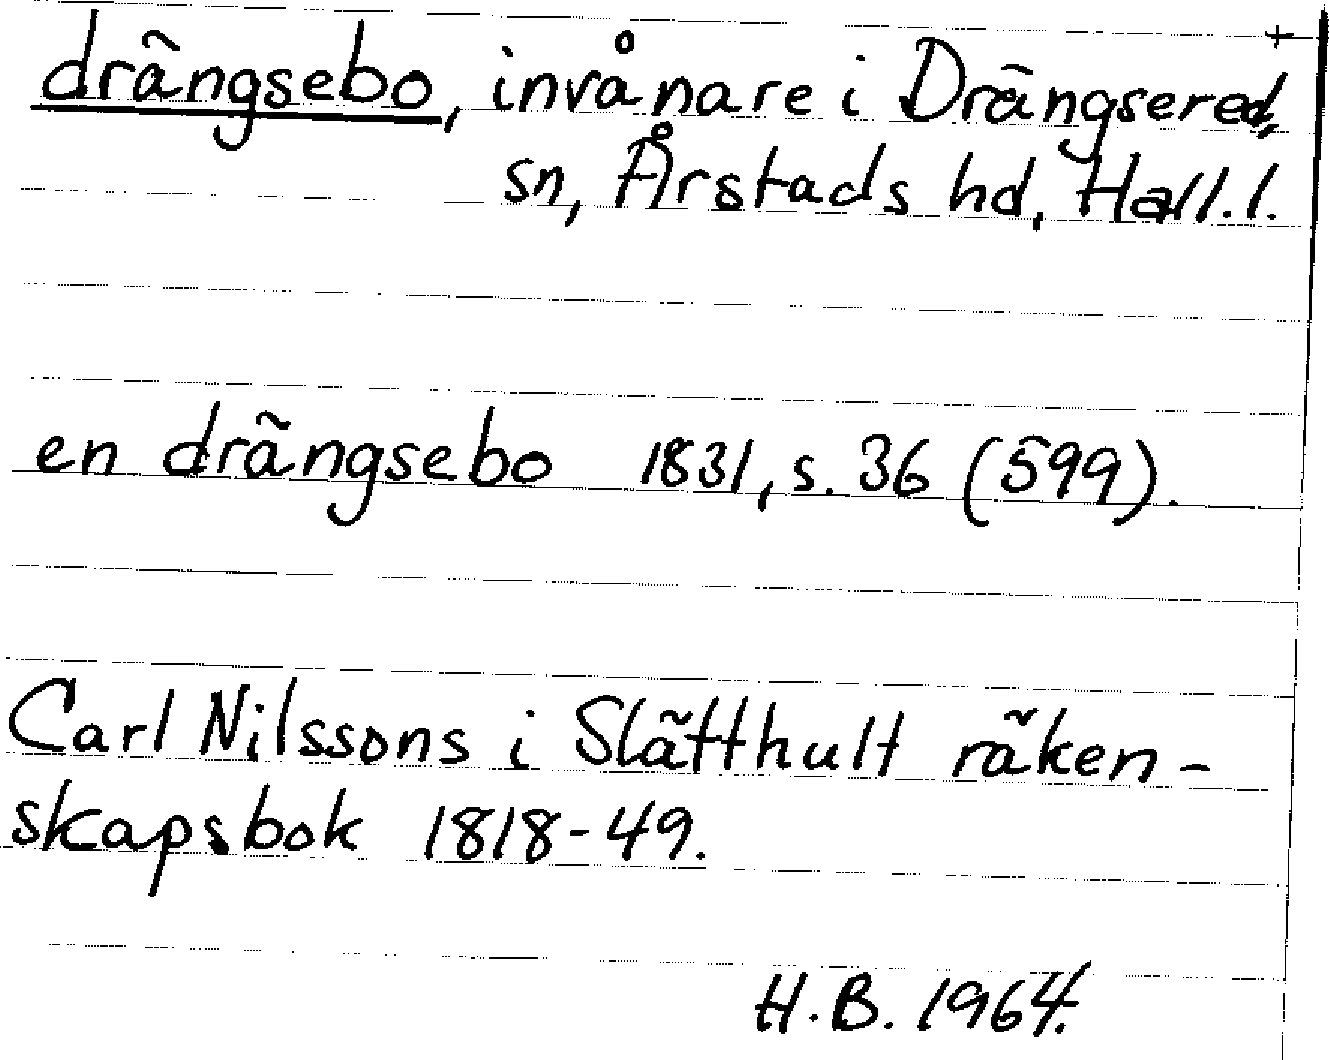 drängsebo, invånare i Drängsered,
sn, Årstads hd, Hall. l.
en drängsebo 1831, s. 36 (599).
Carl Nilssons i Slätthult räken-
skapsbok 1818-49.
H.B. 1964.